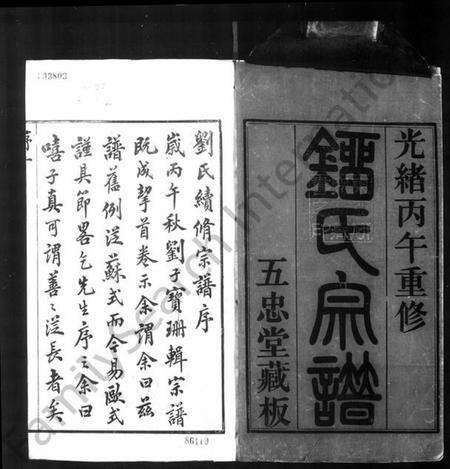 光緒丙午重修
鐂氏宗譜
五忠堂藏板
劉氏續脩宗譜序
歲丙午秋劉子寶珊輯宗譜
既成挈首卷示余謂余曰茲
譜舊例從蘇式而今易歐式
謹具節畧乞先生序之余曰
嘻子真可謂善善從長者矣
133802
86119
FamilySearch International